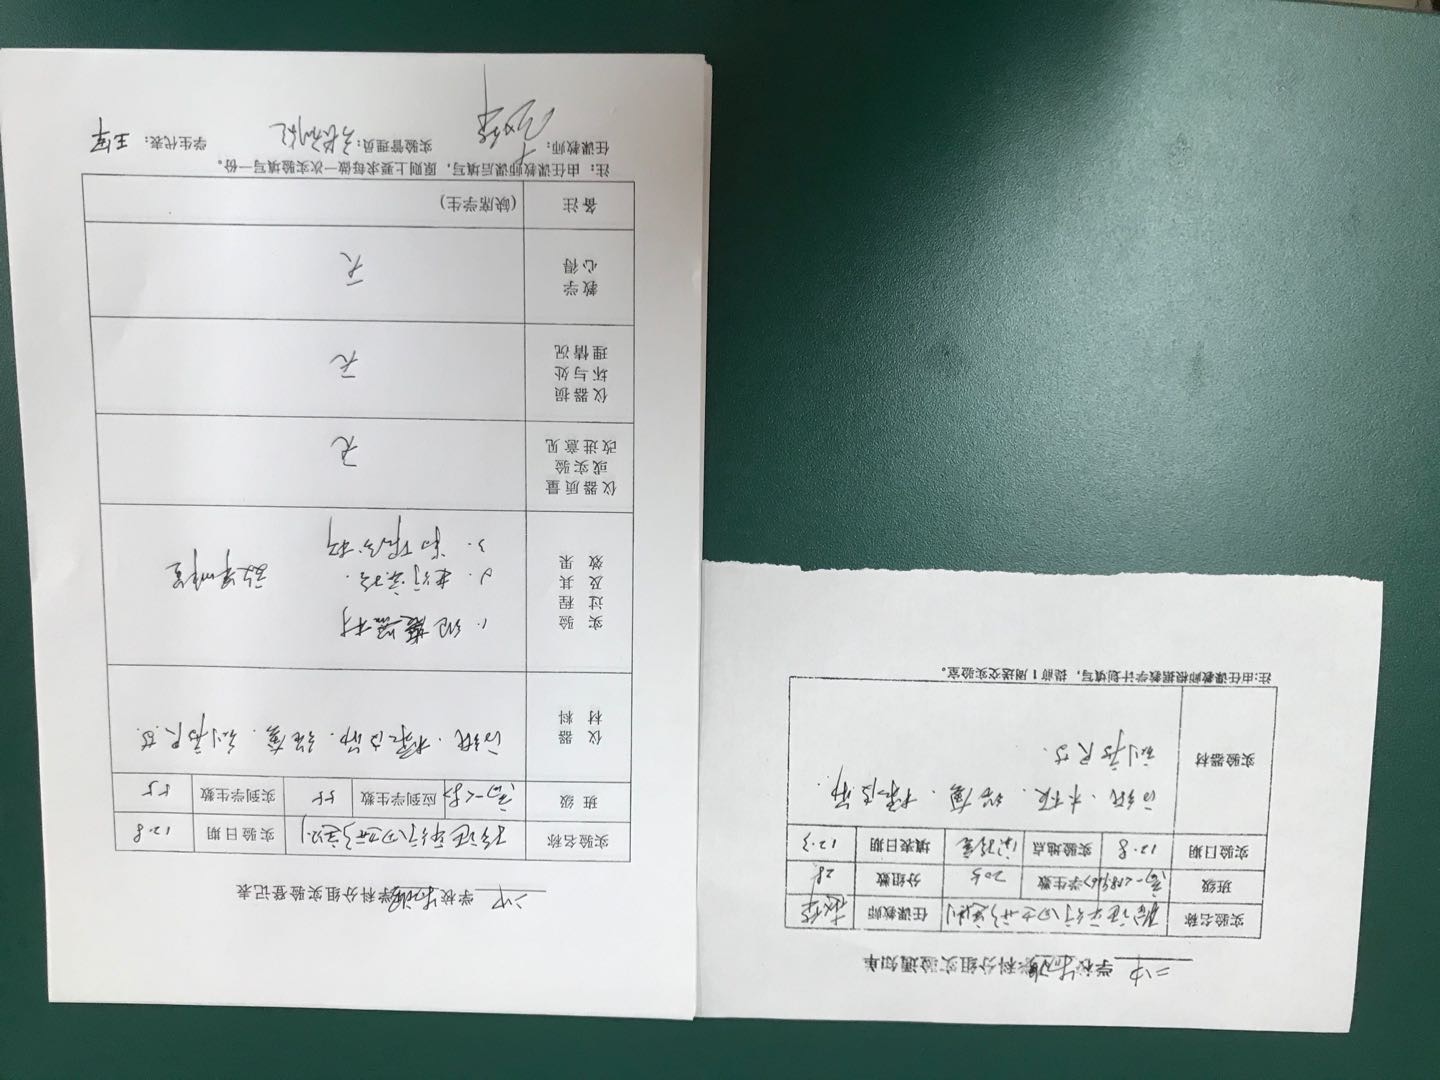 二中 学校物理学科分组实验登记表
实验名称 验证平行四边形定则 实验日期 12.8
班级 应到学生数 55 实到学生数 55
仪器材料 白纸、橡皮筋、图钉、刻度尺等
实验过程及其效果
1.
2. 进行实验.
3.
效果明显
仪器质量或实验改进意见 无
仪器损坏与处理情况 无
教学心得 无
备注 (缺席学生)
注：由任课教师课后填写，原则上要求每做一次实验填写一份。
任课教师： 实验管理员： 学生代表：
二中 学校物理学科分组实验通知单
实验名称 验证平行四边形定则 任课教师
班级 学生数 205 分组数 28
实验日期 12.8 实验地点 实验室 填表日期 12.3
实验器材 白纸、木板、橡皮筋、
刻度尺等.
注:由任课教师根据教学计划填写，提前1周送交实验室。